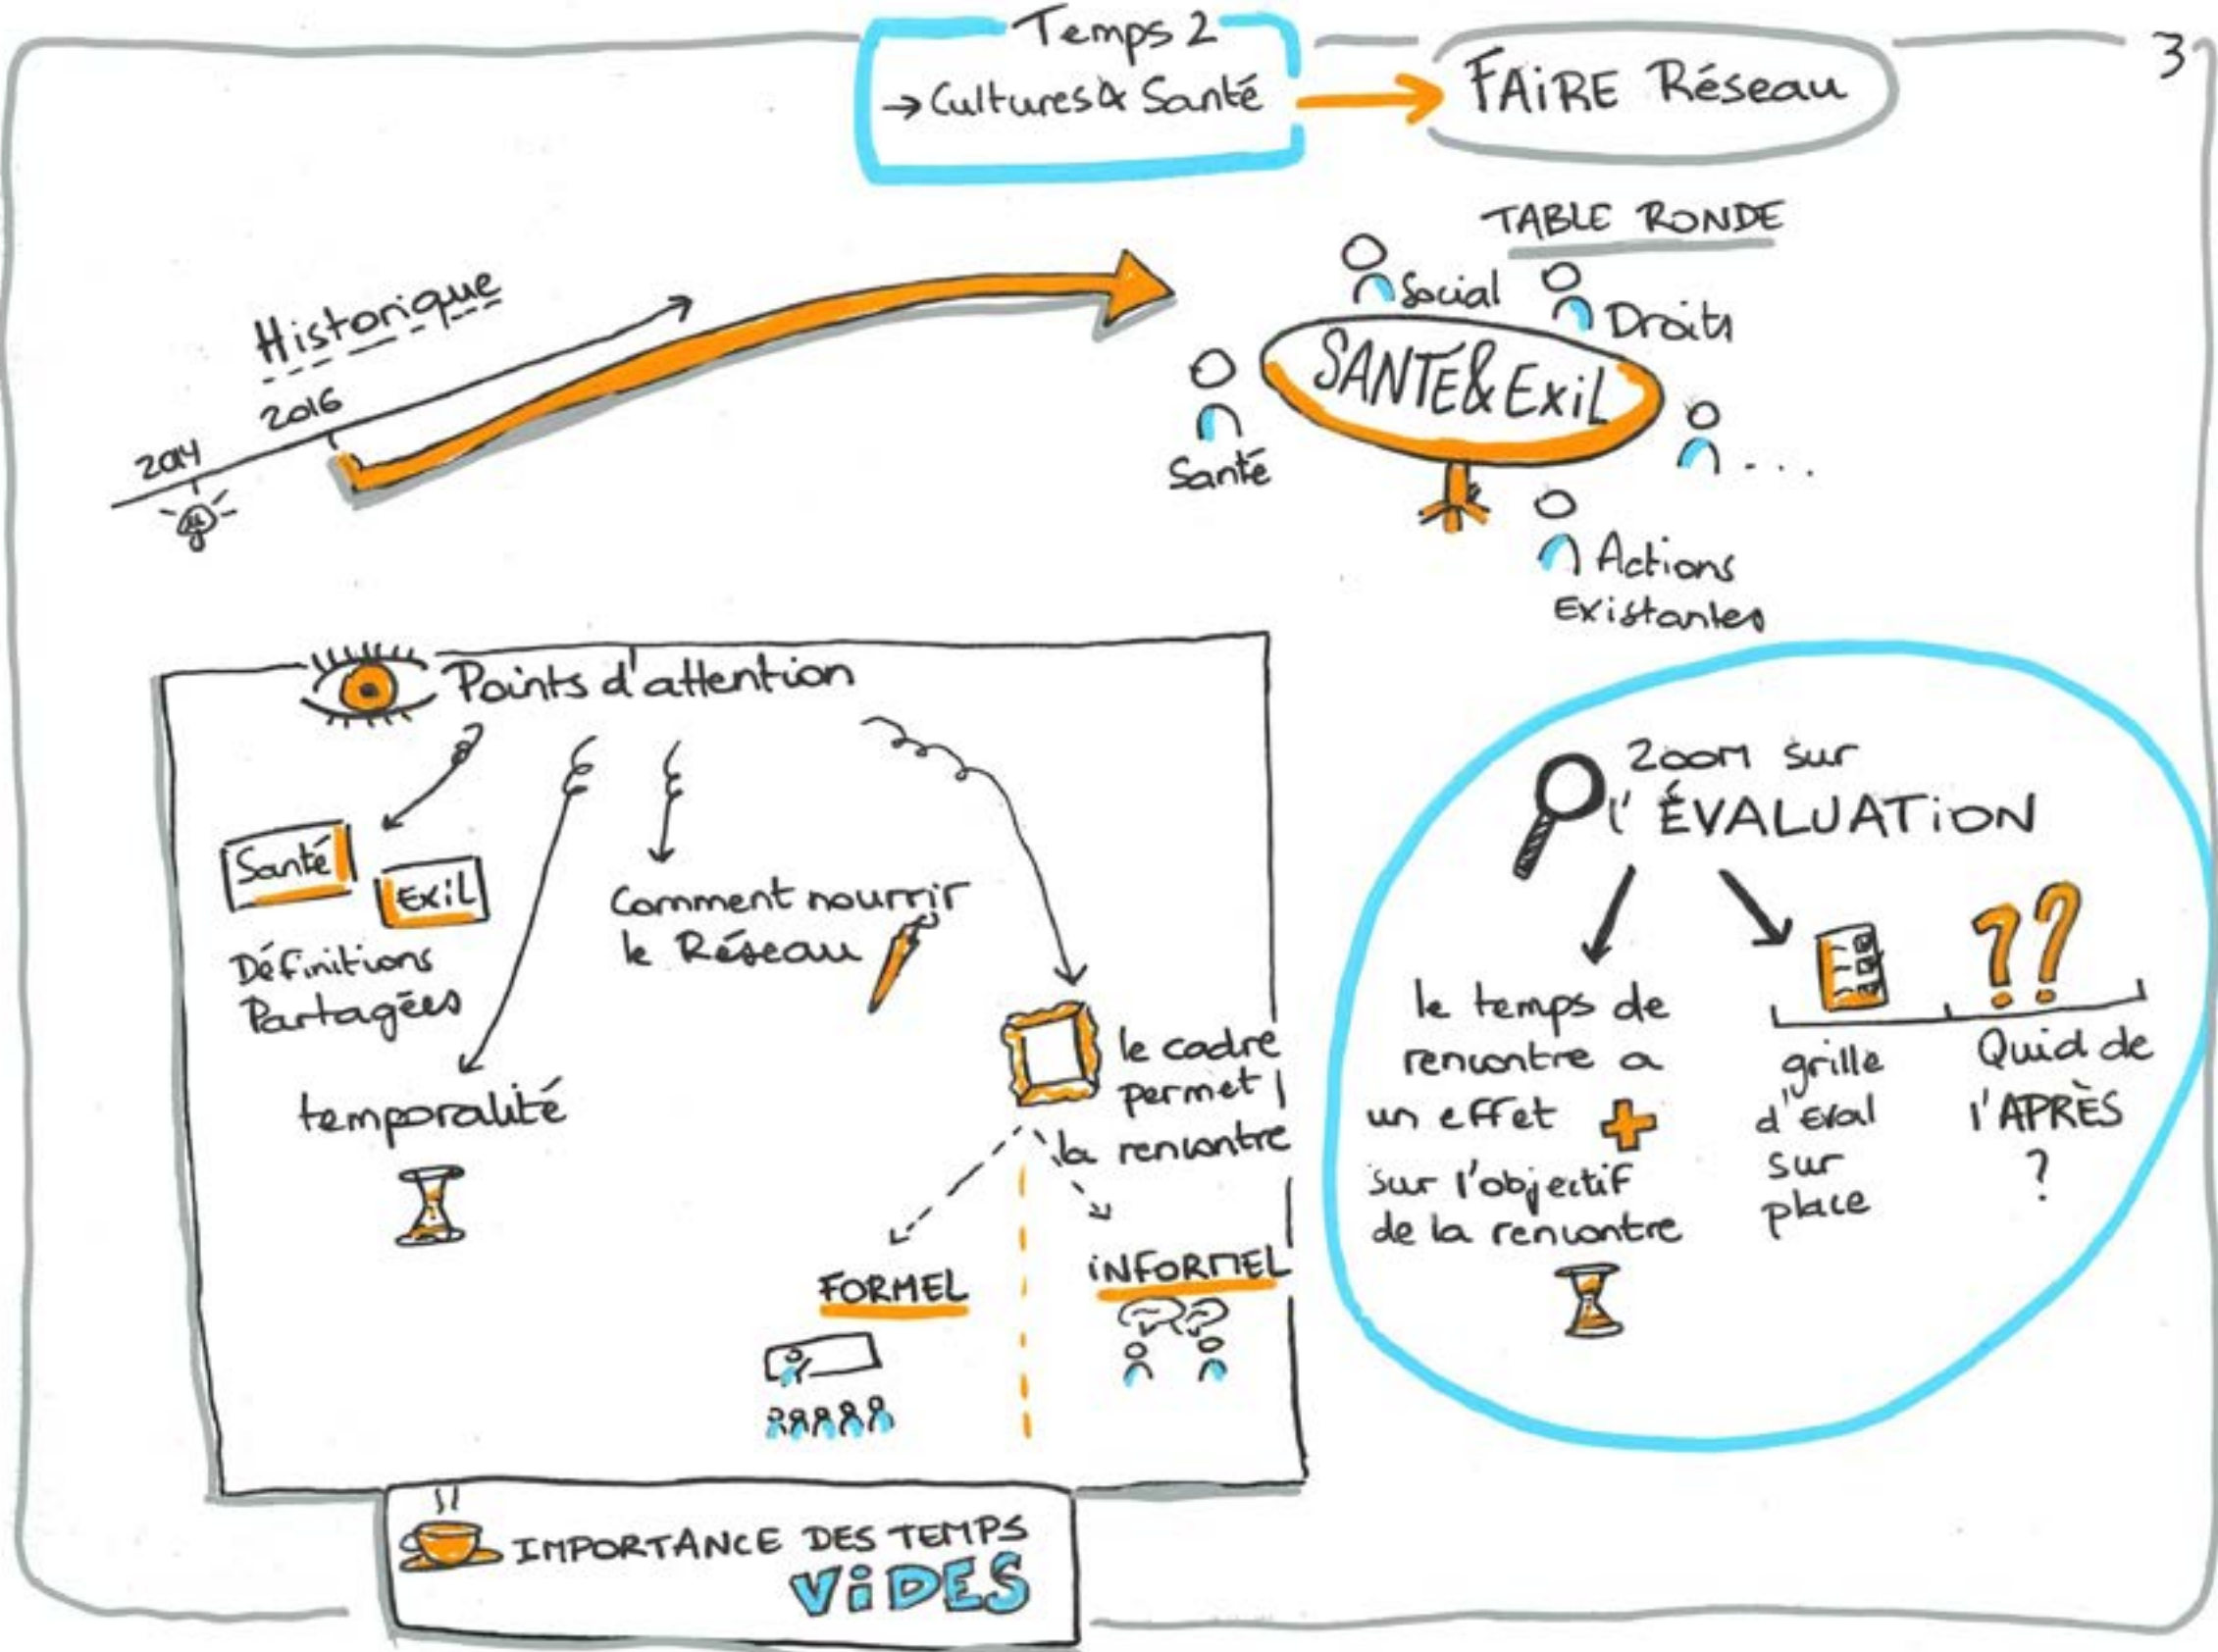 3
Temps 2
→ Cultures & Santé
FAiRE Réseau
TABLE RONDE
Historique
2014
2016
Social
Droits
SANTÉ & ExiL
Santé
...
Actions
Existantes
Points d'attention
Santé
ExiL
Définitions
Partagées
temporalité
Comment nourrir
le Réseau
le cadre
permet
la rencontre
FORMEL
iNFORMEL
IMPORTANCE DES TEMPS
ViDES
ZOOM sur
l'ÉVALUATiON
le temps de
rencontre a
un effet +
sur l'objectif
de la rencontre
grille
d'éval
sur
place
??
Quid de
l'APRÈS
?